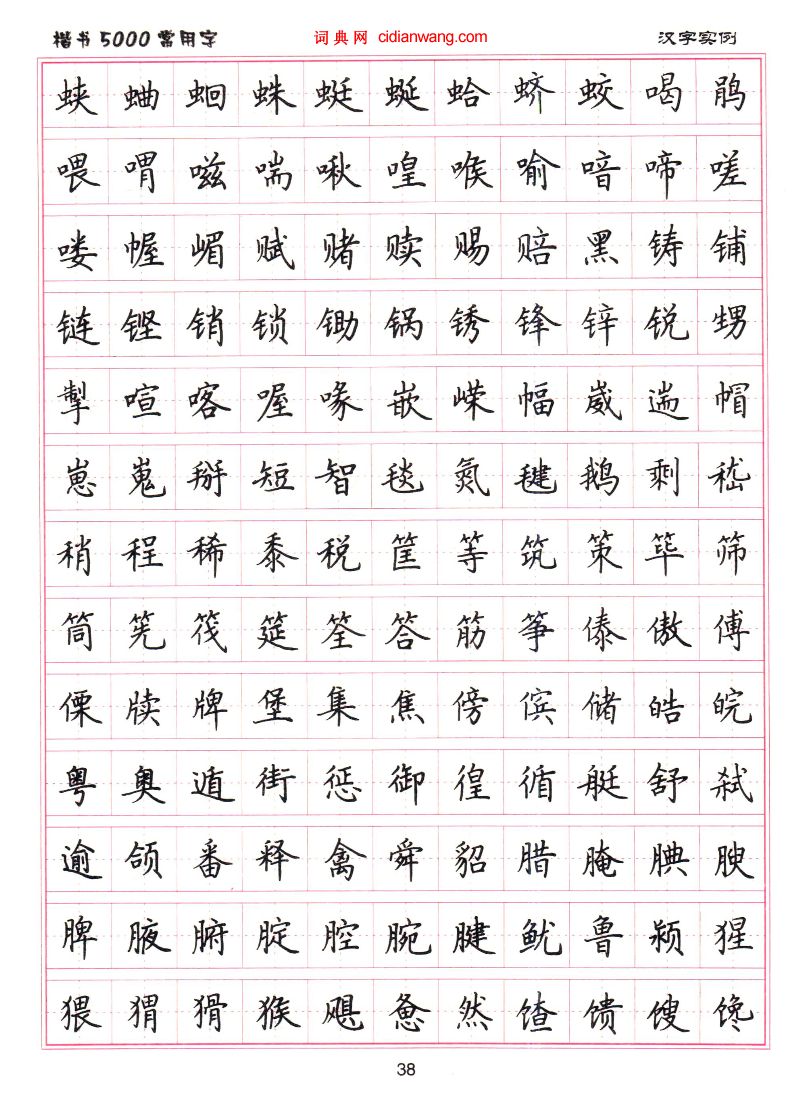 楷书5000常用字 词典网 cidianwang.com 汉字实例
蛱 蛐 蛔 蛛 蜓 蜒 蛤 蛴 蛟 喝 鹃
喂 喟 嗞 喘 啾 喤 喉 喻 喑 啼 嗟
喽 幄 嵋 赋 赌 赎 赐 赔 黑 铸 铺
链 铿 销 锁 锄 锅 锈 锋 锌 锐 甥
掣 喧 喀 喔 喙 嵌 嵘 幅 崴 遄 帽
崽 嵬 掰 短 智 毯 氮 毽 鹅 剩 嵇
稍 程 稀 黍 税 筐 等 筑 策 筚 筛
筒 筅 筏 筵 筌 答 筋 筝 傣 傲 傅
傈 牍 牌 堡 集 焦 傍 傧 储 皓 皖
粤 奥 遁 街 惩 御 徨 循 艇 舒 弑
逾 颌 番 释 禽 舜 貂 腊 腌 腆 腴
脾 腋 腑 腚 腔 腕 腱 鱿 鲁 颍 猩
猥 猬 猾 猴 飓 惫 然 馇 馈 馊 馋
38